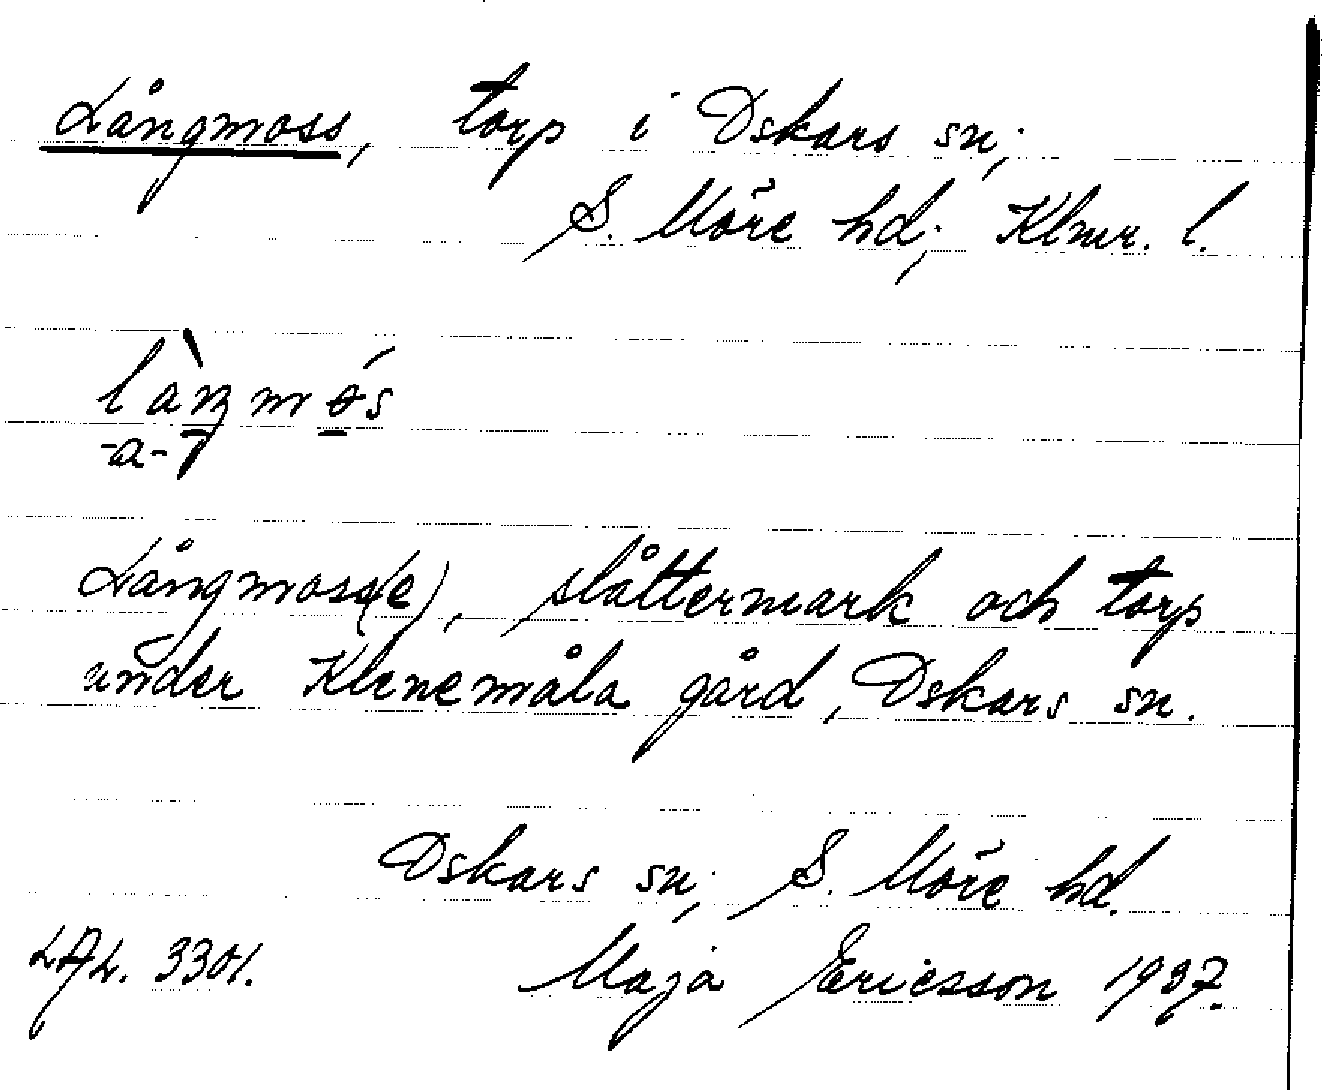 Långmoss, torp i Oskars sn;
S. Möre hd; Klmr. l.
Långmoss(e), slåttermark och torp
under Klenemåla gård, Oskars sn.
Oskars sn; S. Möre hd.
3301. Maja Ericsson 1937.